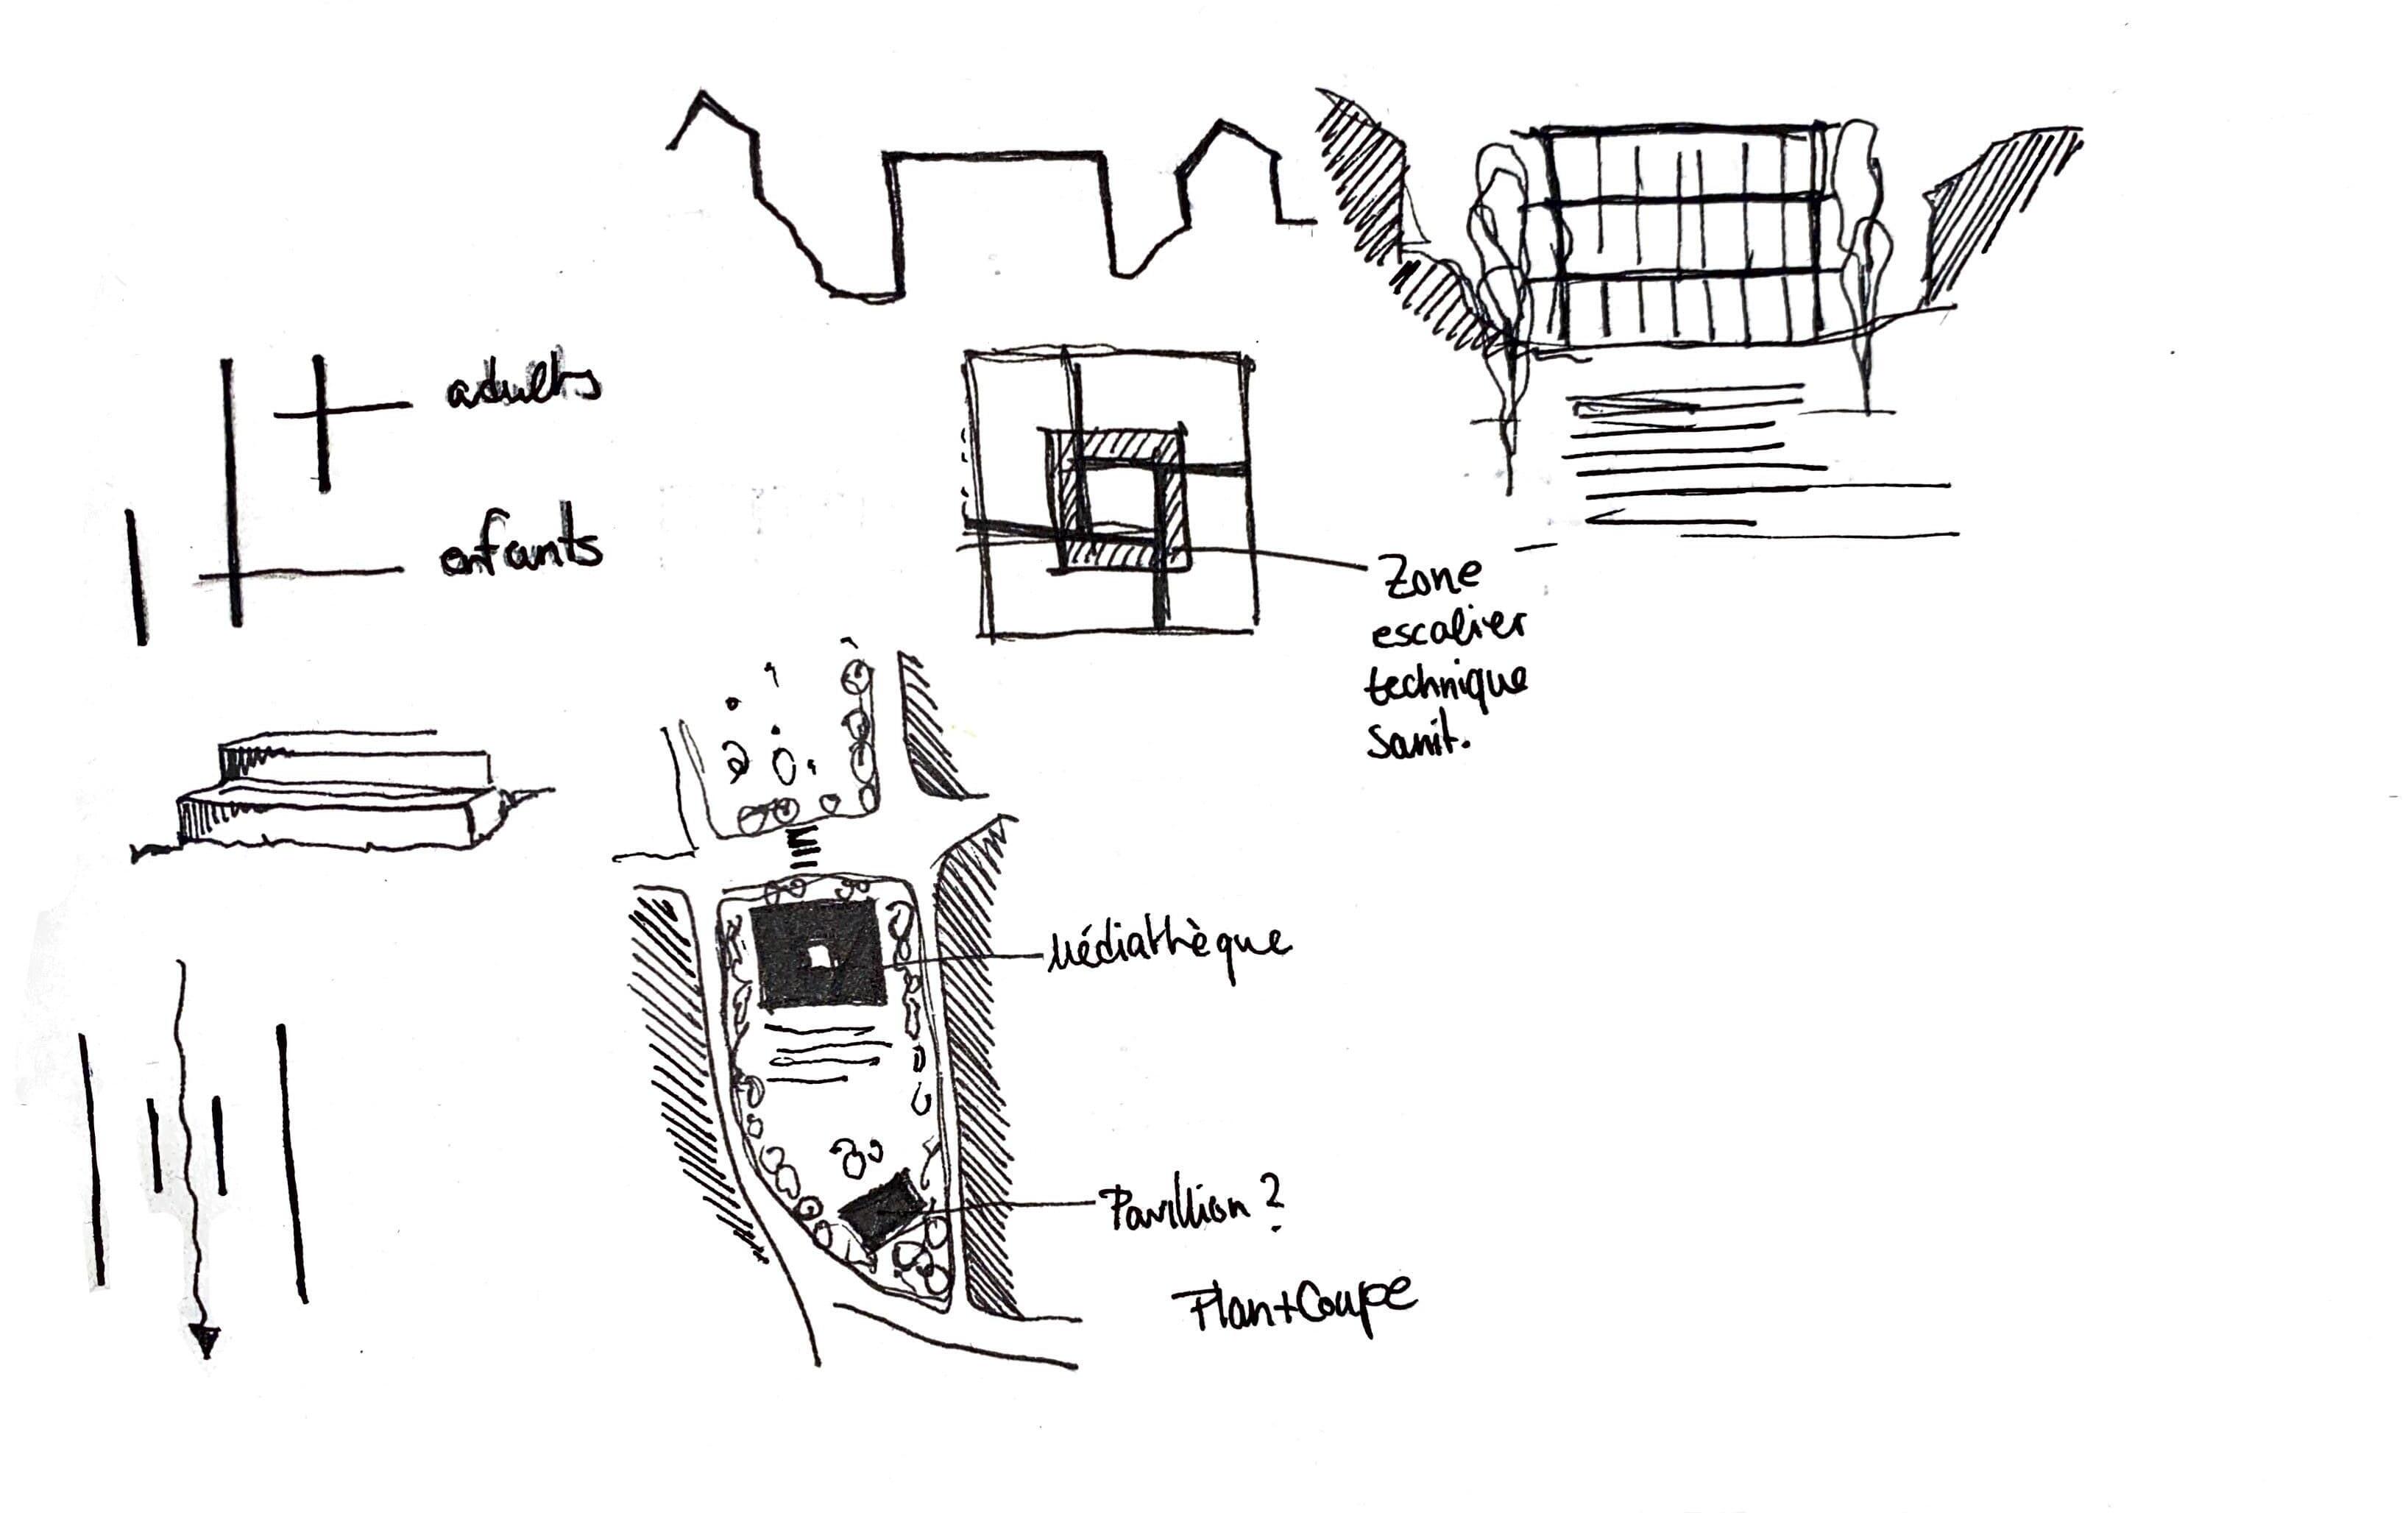 adults
enfants
Zone
escalier
technique
sanit.
Médiathèque
Pavillion ?
Plan+Coupe